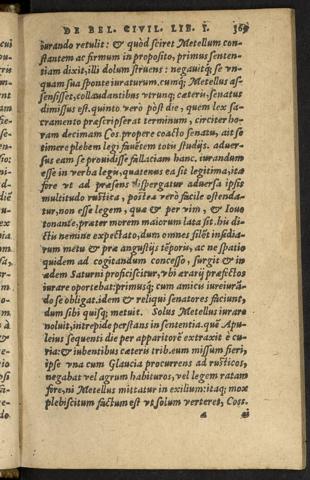 DE BEL. CIVIL. LIB. I.
iurando retulit: & quòd sciret Metellum con-
stantem ac firmum in proposito, primus senten-
tiam dixit, illi dolum struens: negauitq́; se vn-
quam sua sponte iuraturum. cumq́; Metellus as-
sensisset, collaudantibus vtrunq; cæteris, senatus
dimissus est. quinto verò post die, quem lex sa-
cramento præscripserat terminum, circiter ho-
ram decimam Cos. propere coacto senatu, ait se
timere plebem legi fauētem totis studijs. aduer-
sus eam se prouidisse fallaciam hanc. iurandum
esse in verba legis, quatenus ea sit legitima, ita
fore vt ad præsens dispergatur aduersa ipsis
multitudo rustica, postea verò facile ostenda-
tur, non esse legem, quæ & per vim, & Ioue
tonante, præter morem maiorum lata sit. his di-
ctis nemine expectato, dum omnes silēt insidia-
rum metu & præ angustijs tēporis, ac ne spatio
quidem ad cogitandum concesso, surgit & in
ædem Saturni proficiscitur, vbi ærarij præfectos
iurare oportebat: primusq́; cum amicis iureiurā-
do se obligat. idem & reliqui senatores faciunt,
dum sibi quisq; metuit. Solus Metellus iurare
noluit, intrepide perstans in sententia. quē Apu-
leius sequenti die per apparitorē extraxit è cu-
ria: & iubentibus cæteris trib. eum missum fieri,
ipse vna cum Glaucia procurrens ad rusticos,
negabat vel agrum habituros, vel legem ratam
fore, ni Metellus mittatur in exilium: itaq; mox
plebiscitum factum est vt solum verteret, Coss.